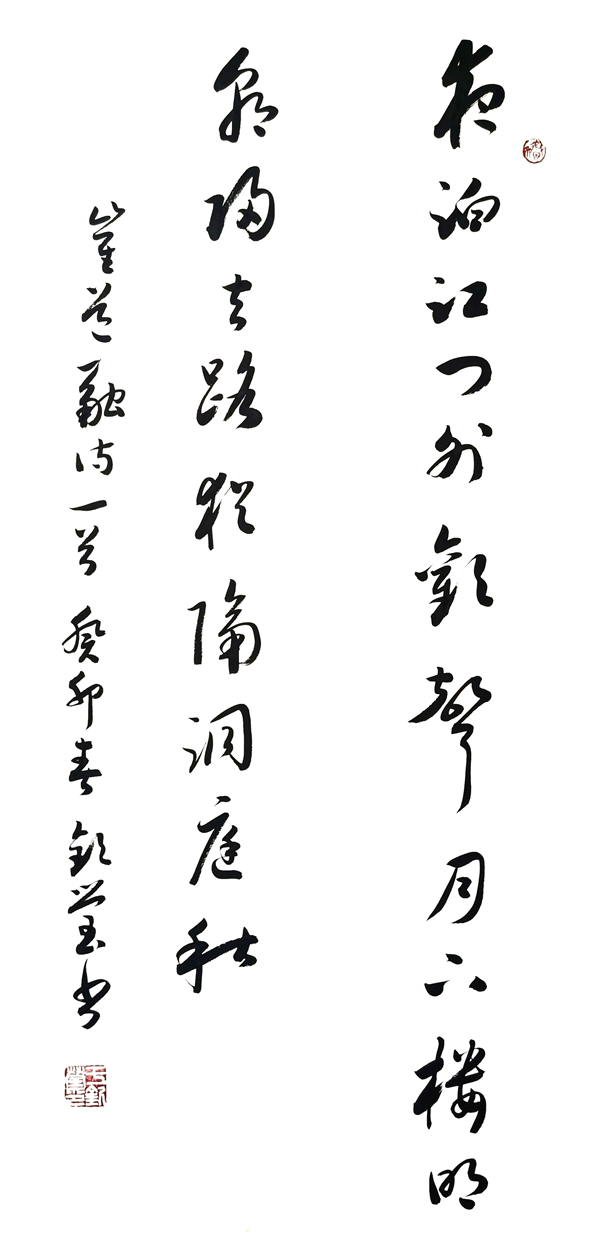 夜泊江门外歡聲月下楼明
朝歸去路猶隔洞庭秋
崔道融诗一首 癸卯春 钦瑩书